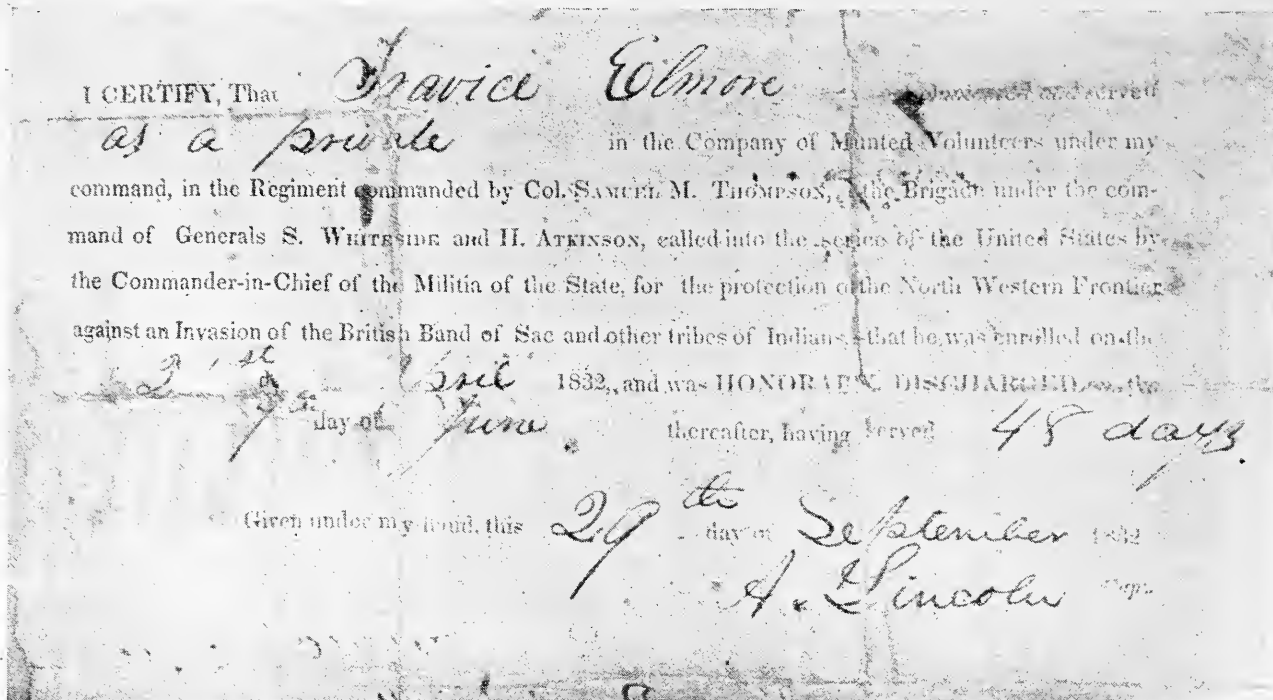 I CERTIFY, That Travice Elmore volunteered and served
as a private in the Company of Munted Volunteers under my
command, in the Regiment commanded by Col. SAMUEL M. THOMPSON, the Brigade under the com-
mand of Generals S. WHITESIDE and H. ATKINSON, called into the service of the United States by
the Commander-in-Chief of the Militia of the State, for the protection of the North Western Frontier
against an Invasion of the British Band of Sac and other tribes of Indians, that he was enrolled on the
21st April 1832, and was HONORABLY DISCHARGED on the
7th day of June thereafter, having served 48 days.
Given under my hand, this 29th day of September 1832
A. Lincoln Capt.